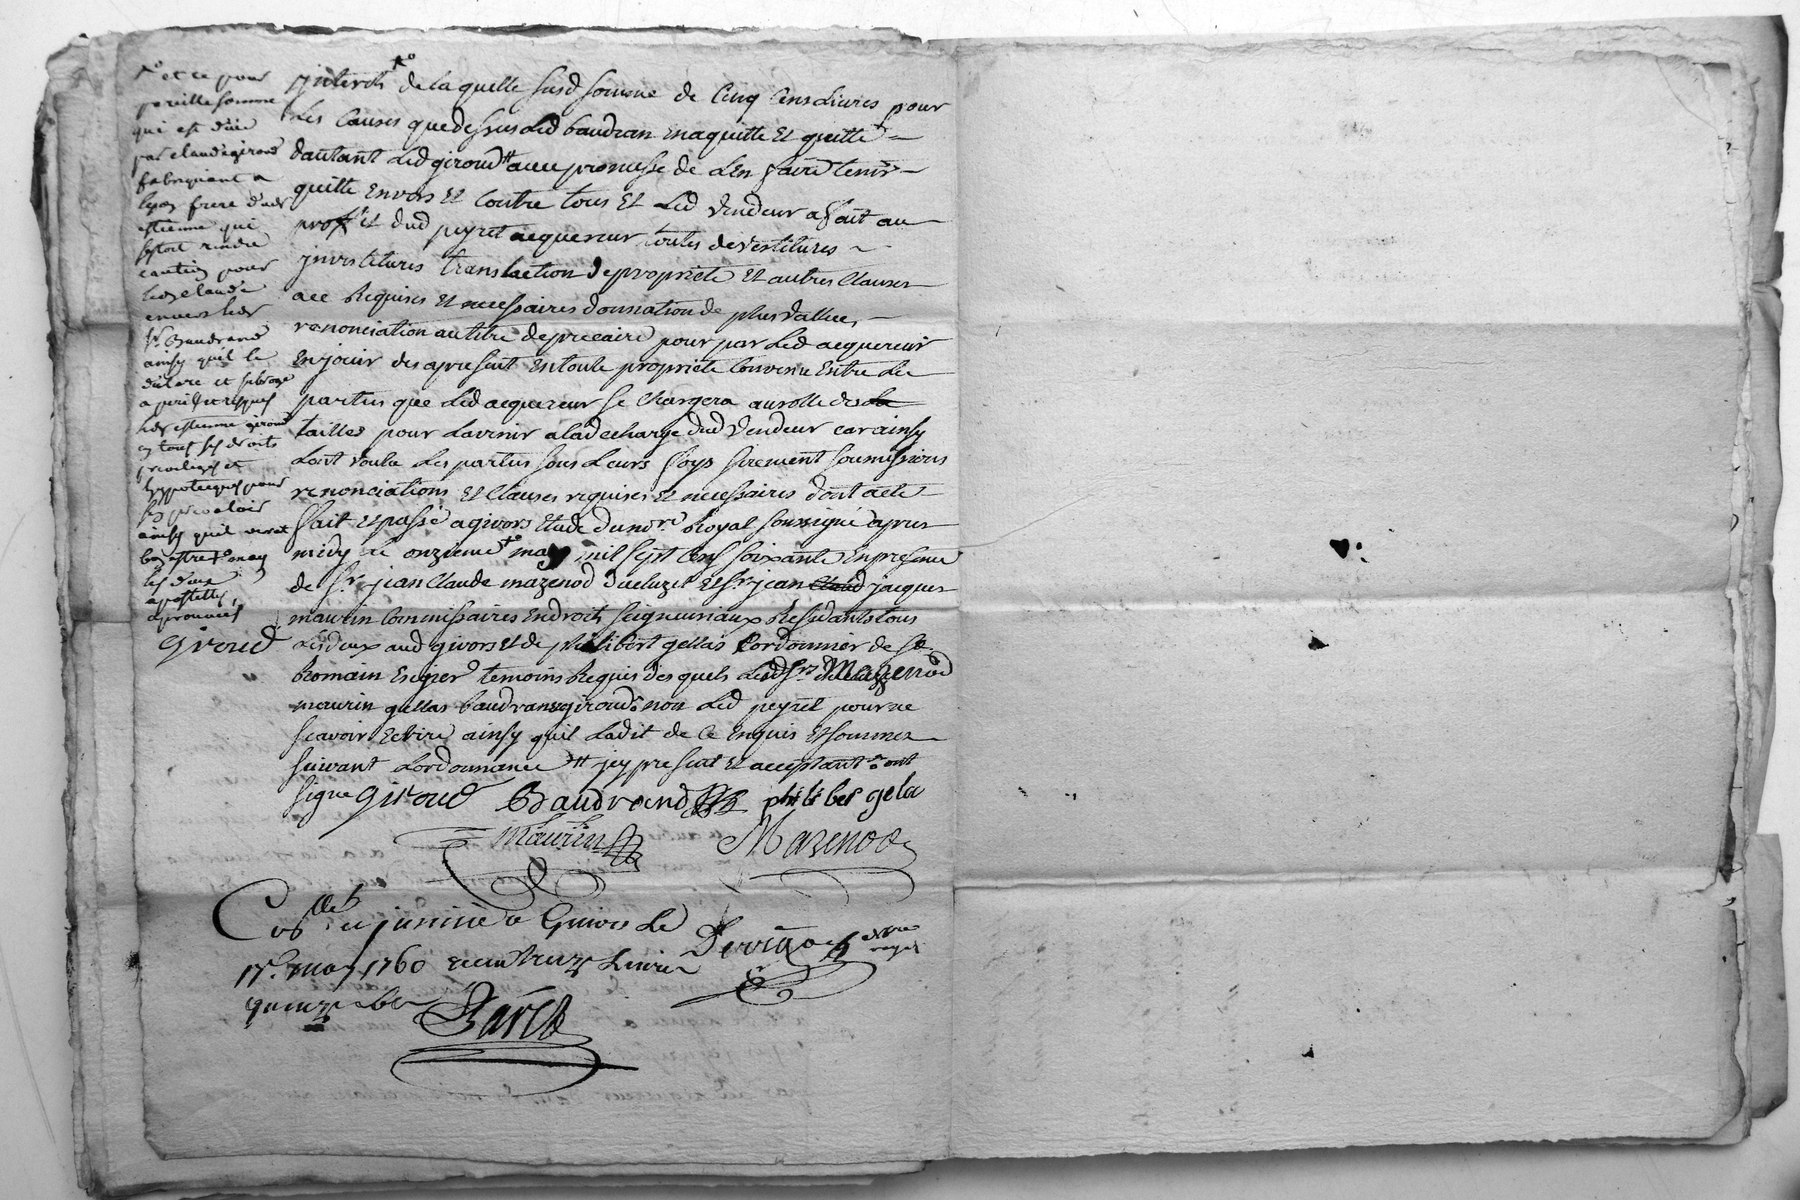 et ce pour
pareille somme
qui est dùe
par claude giroud
fabriquant a
lyon frere dud
estienne qui
sestoit rendu
caution pour
led claude
envers led
Sr Baudrand
ainsy quil le
declare et subroge
a peril et risques
led estienne giroud
en tous ses droits
privileges et
hypoteques pour
sen prevaloir
ainsy quil verat
bon estre may
les deux
apostilles
aprouvées
giroud
jnterets de laquelle susd somme de Cinq Cens Livres pour
Les Causes que dessus Led baudran en a quitté Et quitte
dautant Led giroud avec promesse de Len faire tenir
quitte Envers Et Contre tous Et Led Vendeur a fait au
proffit dud peyret acquereur toutes devestitures
jnvestitures translaction de propriete Et autres Clauses
ace Requises Et necessaires donnation de plus vallue
renonciation au titre de precaire pour par Led acquereur
En jouir des apresent En toute propriete Convenu Entre Les
parties que Led acquereur se Chargera au rolle des La
tailles pour Lavenir a la decharge dud Vendeur car ainsy
Lont voulu Les parties sous Leurs foys serement soumissions
renonciations Et Clauses requises Et necessaires dont acte
fait Et passé a givors Etude du nore Royal soussigné apres
midy Le onzieme may mil sept Cens soixante En presence
de Sr jean Claude mazenod deeluzel Et Sr jean Claud jacques
maurin Commissaires En droits seigneuriaux Residants tous
Les deux aud givors Et de philibert gellas Cordonnier de St
Romain En gier temoins Requis des quels Lesd Srs Mazenod
maurin gellas baudran giroud non Led peyret pour ne
scavoir Ecrire ainsy quil La dit de Ce Enquis Et sommer
suivant Lordonnance jcy present Et acceptant ont
signe giroud Baudrand philiber gela
Maurin Mazenod
Coллé et insinué a Givors Le
17e may 1760 recu treize Livres
quinze sols